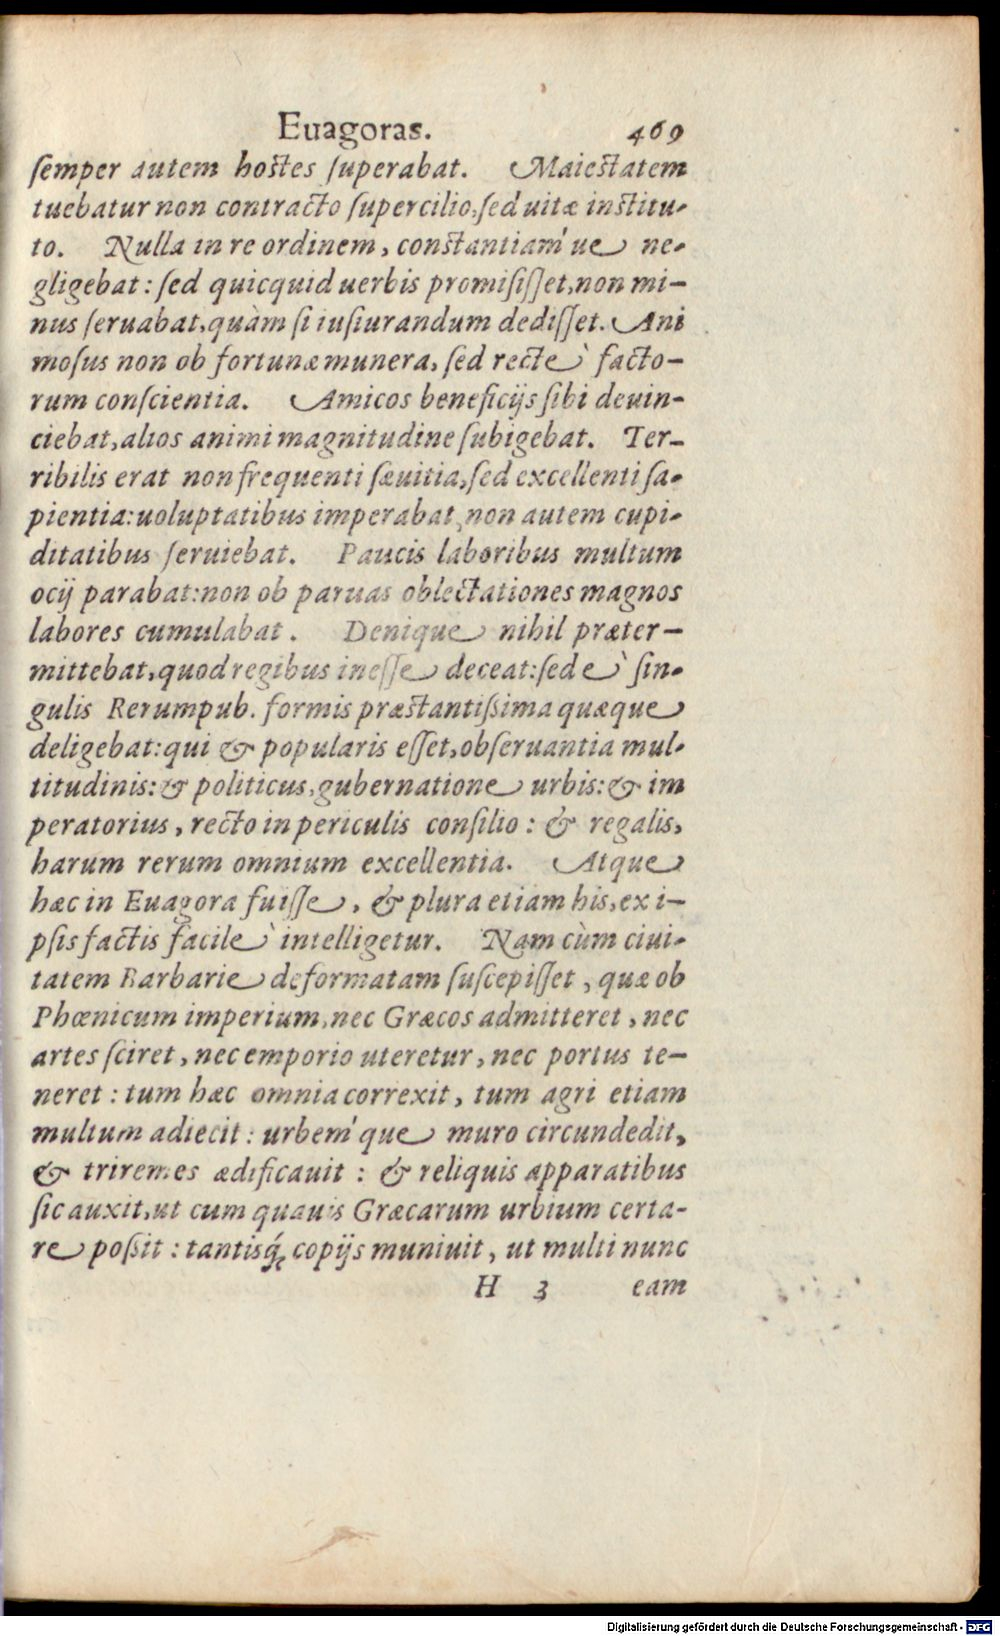 Euagoras. 469
ſemper autem hoſtes ſuperabat. Maieſtatem
tuebatur non contracto ſupercilio, ſed uitæ inſtitu-
to. Nulla in re ordinem, conſtantiam'ue ne-
gligebat: ſed quicquid uerbis promiſiſſet, non mi-
nus ſeruabat, quàm ſi iuſiurandum dediſſet. Ani
moſus non ob fortunæ munera, ſed rectè facto-
rum conſcientia. Amicos beneficijs ſibi deuin-
ciebat, alios animi magnitudine ſubigebat. Ter-
ribilis erat non frequenti ſæuitia, ſed excellenti ſa-
pientia: uoluptatibus imperabat, non autem cupi-
ditatibus ſeruiebat. Paucis laboribus multum
ocij parabat: non ob paruas oblectationes magnos
labores cumulabat. Denique nihil præter-
mittebat, quod regibus ineſſe deceat: ſed è ſin-
gulis Rerumpub. formis præſtantißima quæque
deligebat: qui & popularis eſſet, obſeruantia mul-
titudinis: & politicus, gubernatione urbis: & im
peratorius, recto in periculis conſilio: & regalis,
harum rerum omnium excellentia. Atque
hæc in Euagora fuiſſe, & plura etiam his, ex i-
pſis factis facilè intelligetur. Nam cùm ciui-
tatem Barbarie deformatam ſuſcepiſſet, quæ ob
Phœnicum imperium, nec Græcos admitteret, nec
artes ſciret, nec emporio uteretur, nec portus te-
neret: tum hæc omnia correxit, tum agri etiam
multum adiecit: urbem'que muro circundedit,
& triremes ædificauit: & reliquis apparatibus
ſic auxit, ut cum quauis Græcarum urbium certa-
re poßit: tantisq́; copijs muniuit, ut multi nunc
H 3 eam
Digitalisierung gefördert durch die Deutsche Forschungsgemeinschaft - DFG